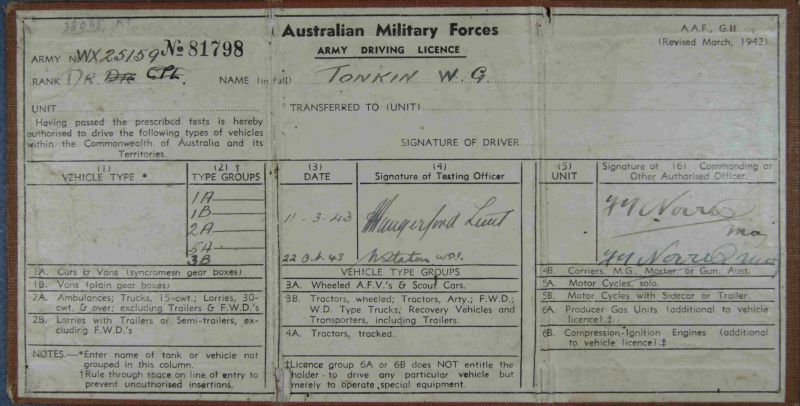 Australian Military Forces
ARMY DRIVING LICENCE
A.A.F., G.11.
(Revised March, 1942)
ARMY No WX25159 No 81798
RANK DR CPL. NAME (in full) TONKIN W. G.
UNIT
TRANSFERRED TO (UNIT)
Having passed the prescribed tests is hereby
authorised to drive the following types of vehicles
within the Commonwealth of Australia and its
Territories.
SIGNATURE OF DRIVER
(1)
VEHICLE TYPE *
(2) †
TYPE GROUPS
1A
1B
2A
5A
3B
(3)
DATE
11-3-43
22 Oct. 43
(4)
Signature of Testing Officer
Hungerford Lieut
(5)
UNIT
Signature of (6) Commanding or
Other Authorised Officer.
Maj
Maj
1A. Cars & Vans (syncromesh gear boxes)
1B. Vans (plain gear boxes)
2A. Ambulances; Trucks, 15-cwt.; Lorries, 30-
cwt. & over; excluding Trailers & F.W.D.'s
2B. Lorries with Trailers or Semi-trailers, ex-
cluding F.W.D.'s
NOTES.—*Enter name of tank or vehicle not
grouped in this column.
†Rule through space on line of entry to
prevent unauthorised insertions.
VEHICLE TYPE GROUPS
3A. Wheeled A.F.V.'s & Scout Cars.
3B. Tractors, wheeled; Tractors, Arty.; F.W.D.;
W.D. Type Trucks; Recovery Vehicles and
Transporters, including Trailers.
4A. Tractors, tracked.
‡Licence group 6A or 6B does NOT entitle the
holder to drive any particular vehicle but
merely to operate special equipment.
4B. Carriers, M.G., Mortar or Gun, Aust.
5A. Motor Cycles, solo.
5B. Motor Cycles with Sidecar or Trailer.
6A. Producer Gas Units (additional to vehicle
licence) ‡
6B. Compression-Ignition Engines (additional
to vehicle licence) ‡